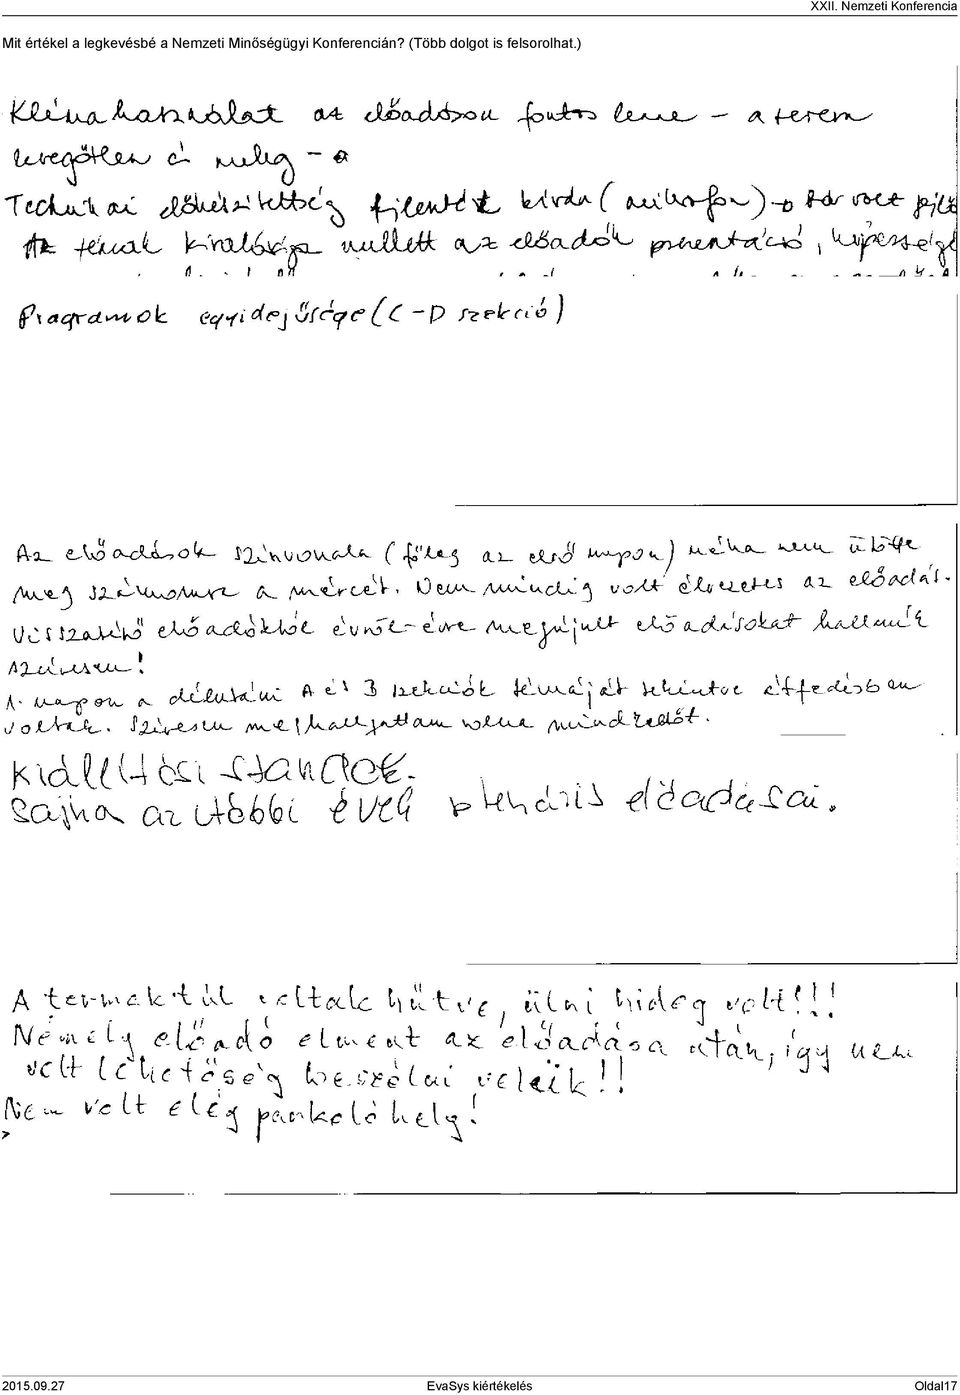 XXII. Nemzeti Konferencia
Mit értékel a legkevésbé a Nemzeti Minőségügyi Konferencián? (Több dolgot is felsorolhat.)
Klímahasználat az előadáson fontos lenne - a terem
levegőtlen és meleg - a
Technikai előkészítettség kívda (mikrofon) → bár volt
Az témák kiválósága mellett az előadók prezentáció, képessége
Programok egyidejűsége (C-D szekció)
Az előadások színvonala (főleg az első napon) néha nem ütötte
meg számomra a mércét. Nem mindig volt élvezetes az előadás.
Visszatérő előadóktól évről-évre megújult előadásokat hallanék
szívesen!
1. napon a délutáni A és B szekciók témáját tekintve átfedésben
voltak. Szívesen meghallgattam volna mindkettőt.
Kiállítási standok.
Sajna az utóbbi évek plenáris előadásai.
A termek túl voltak hűtve, ülni hideg volt!!!
Némely előadó elment az előadása után, így nem
volt lehetőség beszélni velük!!
Nem volt elég parkoló hely!
>
2015.09.27 EvaSys kiértékelés Oldal17